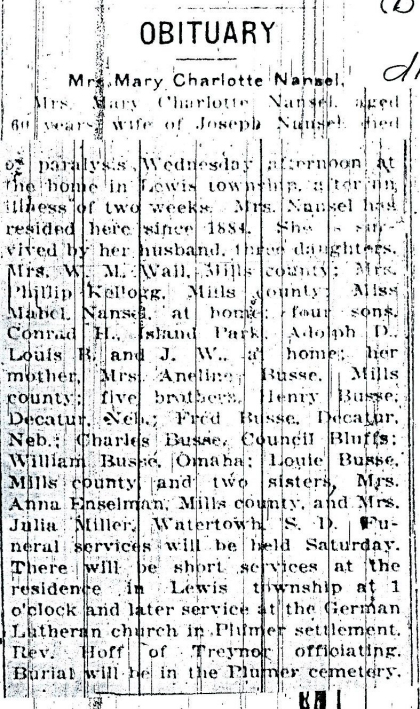 OBITUARY
Mrs. Mary Charlotte Nansel.
Mrs. Mary Charlotte Nansel, aged
60 years, wife of Joseph Nansel, died
of paralysis Wednesday afternoon at
the home in Lewis township, after an
illness of two weeks. Mrs. Nansel has
resided here since 1884. She is sur-
vived by her husband, three daughters,
Mrs. W. M. Wall, Mills county; Mrs.
Phillip Kellogg, Mills county; Miss
Mabel Nansel, at home; four sons,
Conrad H., Island Park, Adolph D.,
Louis B. and J. W., at home; her
mother, Mrs. Aneline Busse, Mills
county; five brothers, Henry Busse,
Decatur, Neb.; Fred Busse, Decatur,
Neb.; Charles Busse, Council Bluffs;
William Busse, Omaha; Louie Busse,
Mills county, and two sisters, Mrs.
Anna Enselman, Mills county, and Mrs.
Julia Miller, Watertown, S. D. Fu-
neral services will be held Saturday.
There will be short services at the
residence in Lewis township at 1
o'clock and later service at the German
Lutheran church in Plumer settlement.
Rev. Hoff of Treynor officiating.
Burial will be in the Plumer cemetery.